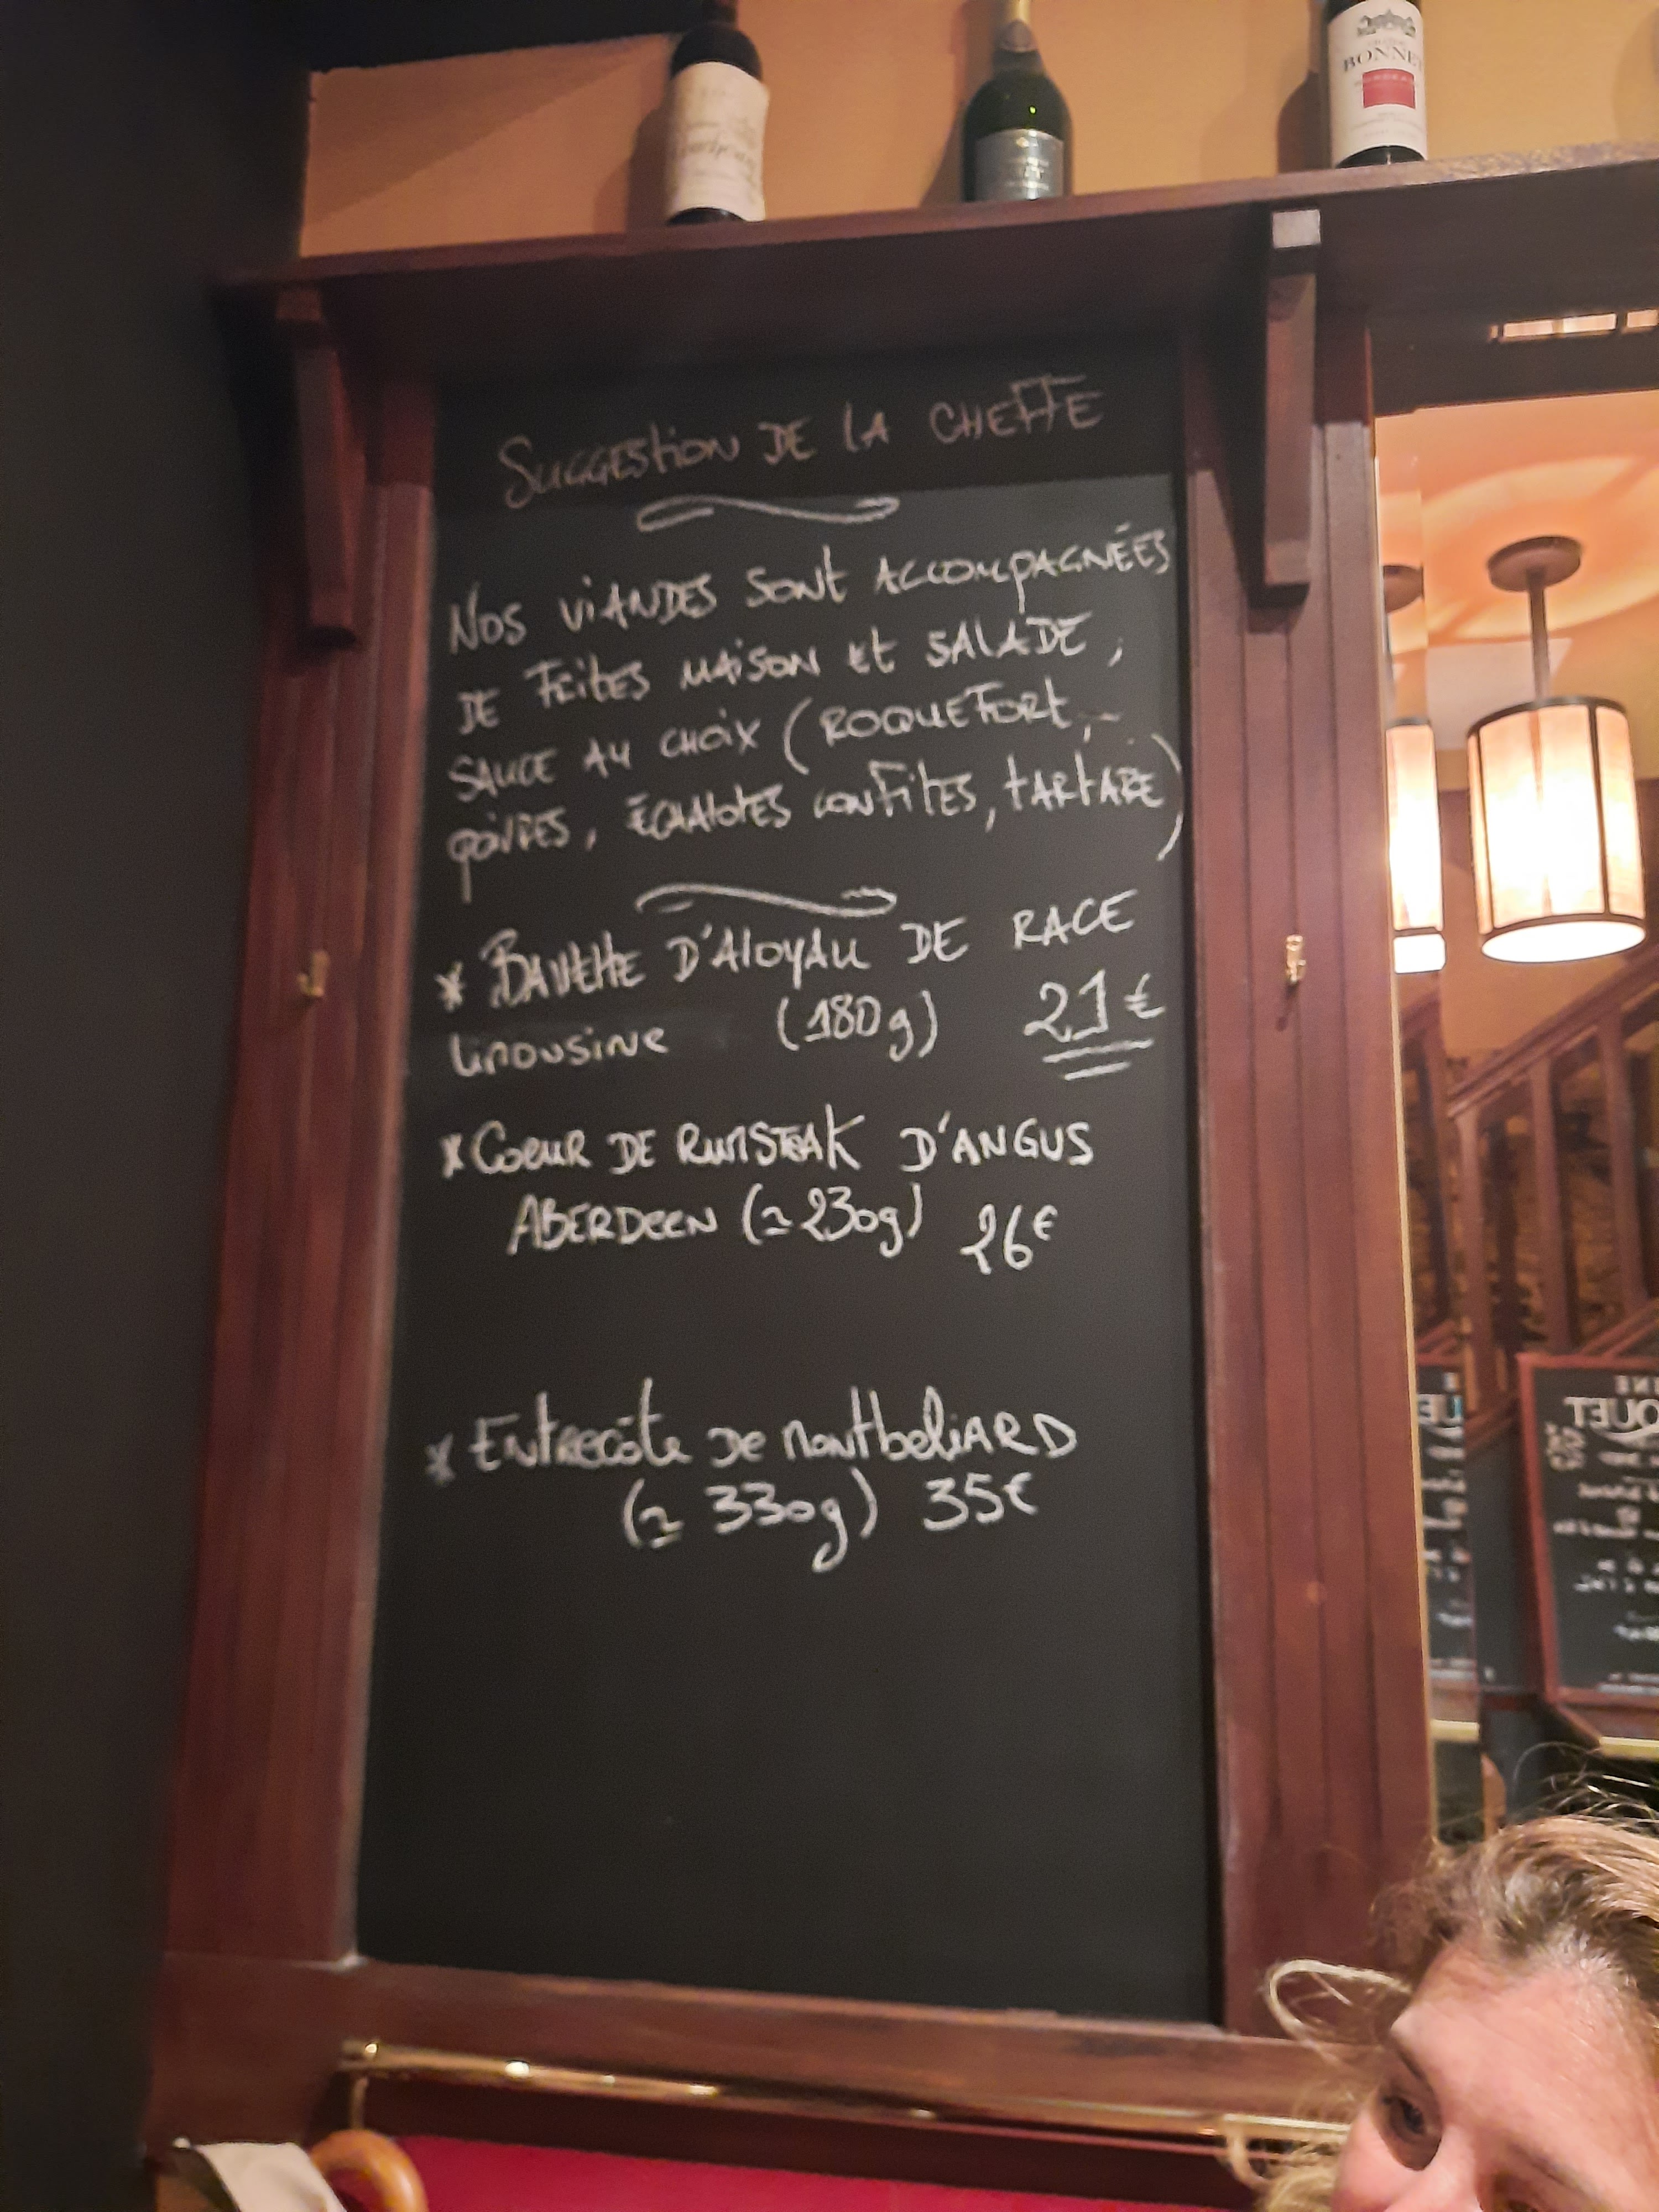 BONNET
SUGGESTION DE LA CHEFFE
NOS VIANDES SONT ACCOMPAGNÉES
DE FRITES MAISON ET SALADE,
SAUCE AU CHOIX (ROQUEFORT,
POIVRES, ÉCHALOTES CONFITES, TARTARE)
* BAVETTE D'ALOYAU DE RACE
LIMOUSINE (180g) 21€
* COEUR DE RUMSTEAK D'ANGUS
ABERDEEN (≃230g) 26€
* ENTRECÔTE DE MONTBELIARD
(≃ 330g) 35€